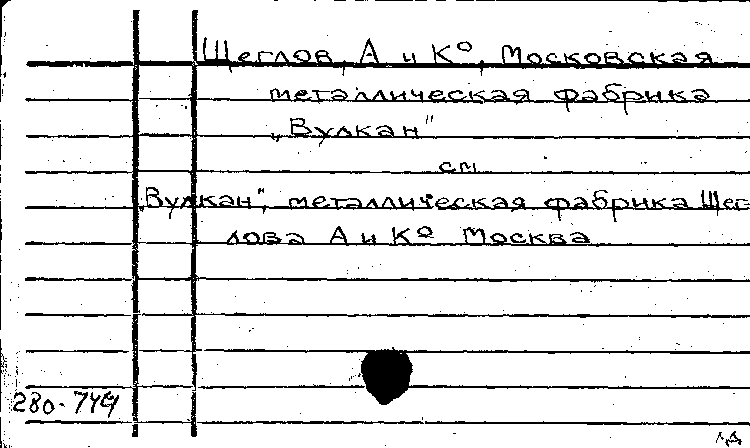 Щеглов, А и К⁰, Московская
металлическая фабрика
„Вулкан"
см
„Вулкан", металлическая фабрика Щег
лова А и К⁰ Москва
280-744